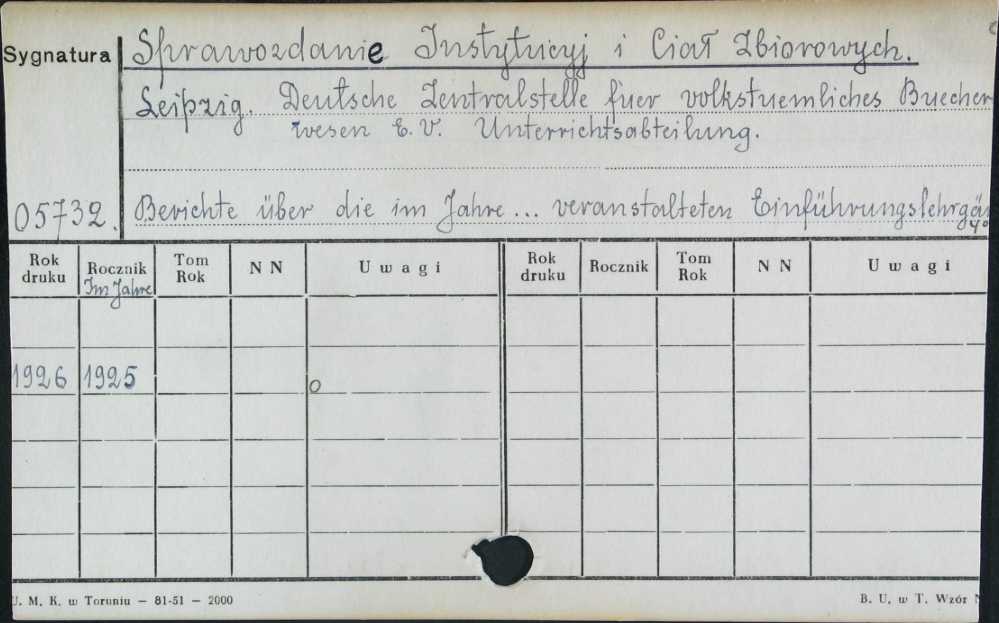 Sygnatura
Sprawozdanie Instytucyj i Ciał Zbiorowych.
Leipzig. Deutsche Zentralstelle fuer volkstuemliches Buecher
wesen E.V. Unterrichtsabteilung.
05732.
Berichte über die im Jahre... veranstalteten Einführungslehrgän
Rok druku Rocznik Tom Rok N N Uwagi Rok druku Rocznik Tom Rok N N Uwagi
Im Jahre
1926 1925 o
U. M. K. w Toruniu — 81-51 — 2000
B. U. w T. Wzór N